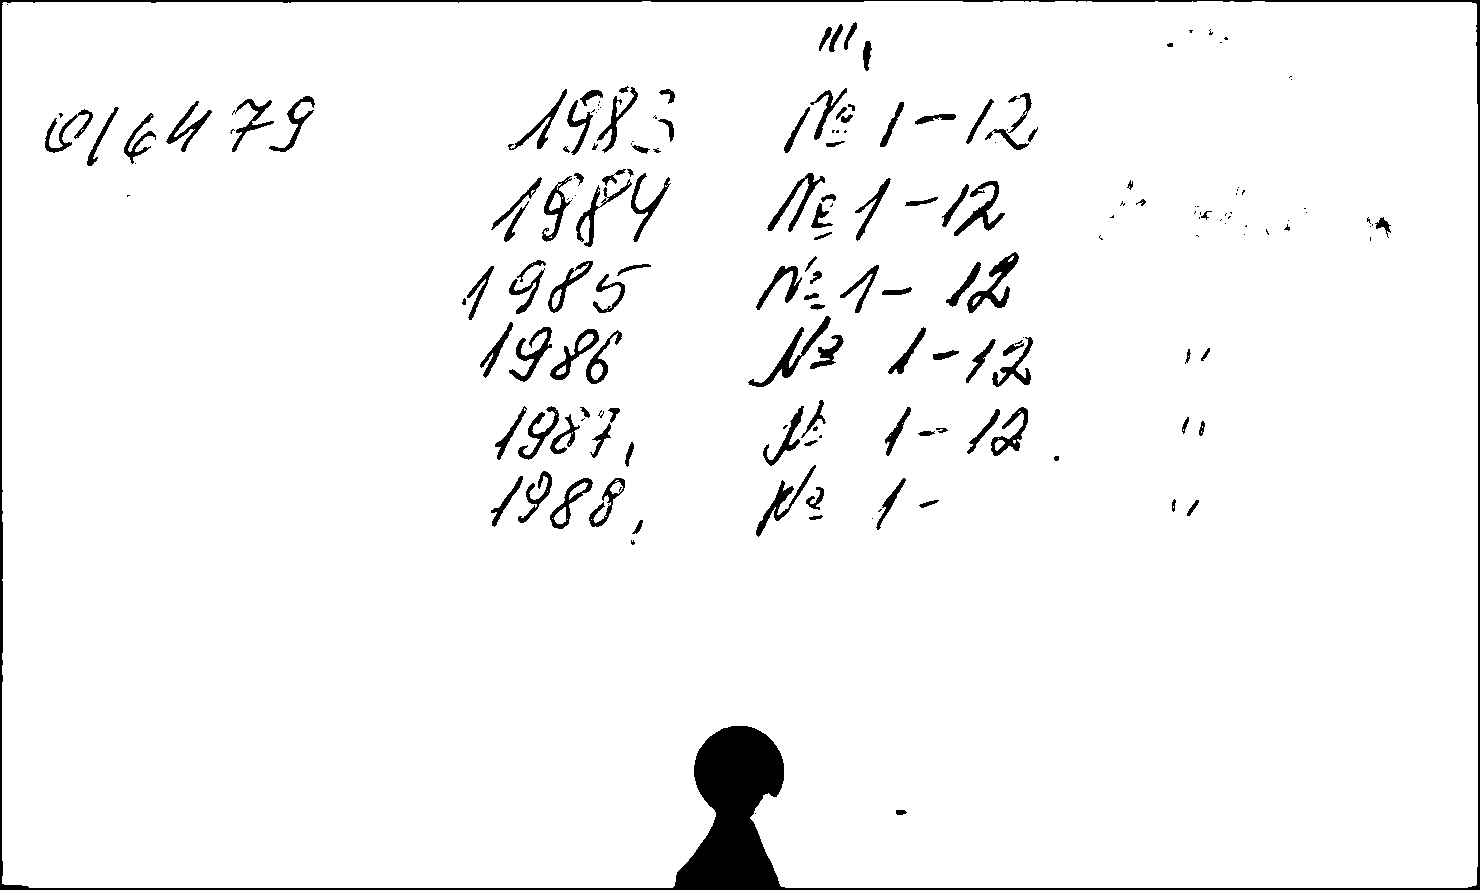 III,
016479 1983 № 1-12
1984 № 1-12
1985 № 1-12
1986 № 1-12 "
1987, № 1-12. "
1988, № 1- "